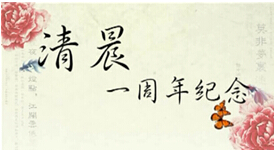 清晨
一周年纪念